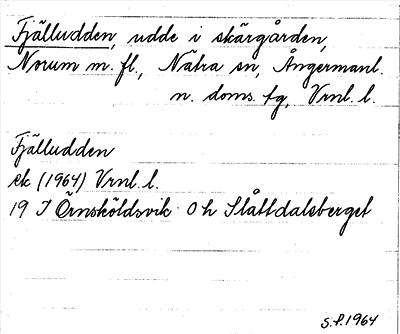 Fjälludden, udde i skärgården,
Norum m. fl., Nätra sn, Ångermanl.
n. doms. fg, Vrnl. l.
Fjälludden
ek (1964) Vrnl. l.
19 I Örnsköldsvik 0 h Slåttdalsberget
S.P. 1964